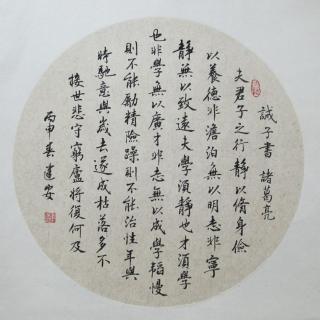 誡子書 諸葛亮
夫君子之行靜以脩身儉
以養德非澹泊無以明志非寧
靜無以致遠夫學須靜也才須學
也非學無以廣才非志無以成學韜慢
則不能勵精險躁則不能治性年與
時馳意與歲去遂成枯落多不
接世悲守窮廬將復何及
丙申春建安